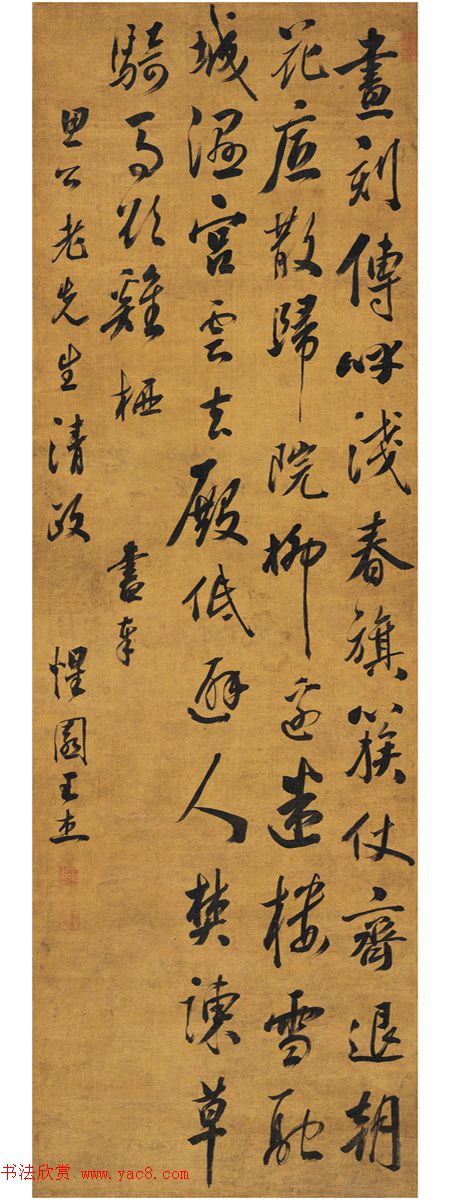 晝刻傳呼淺春旗簇仗齊退朝
花底散歸院柳邊迷樓雪融
城濕宮雲去殿低避人焚諫草
騎馬欲雞栖 書奉
思公老先生清政 惺園王杰
书法欣赏 www.yac8.com